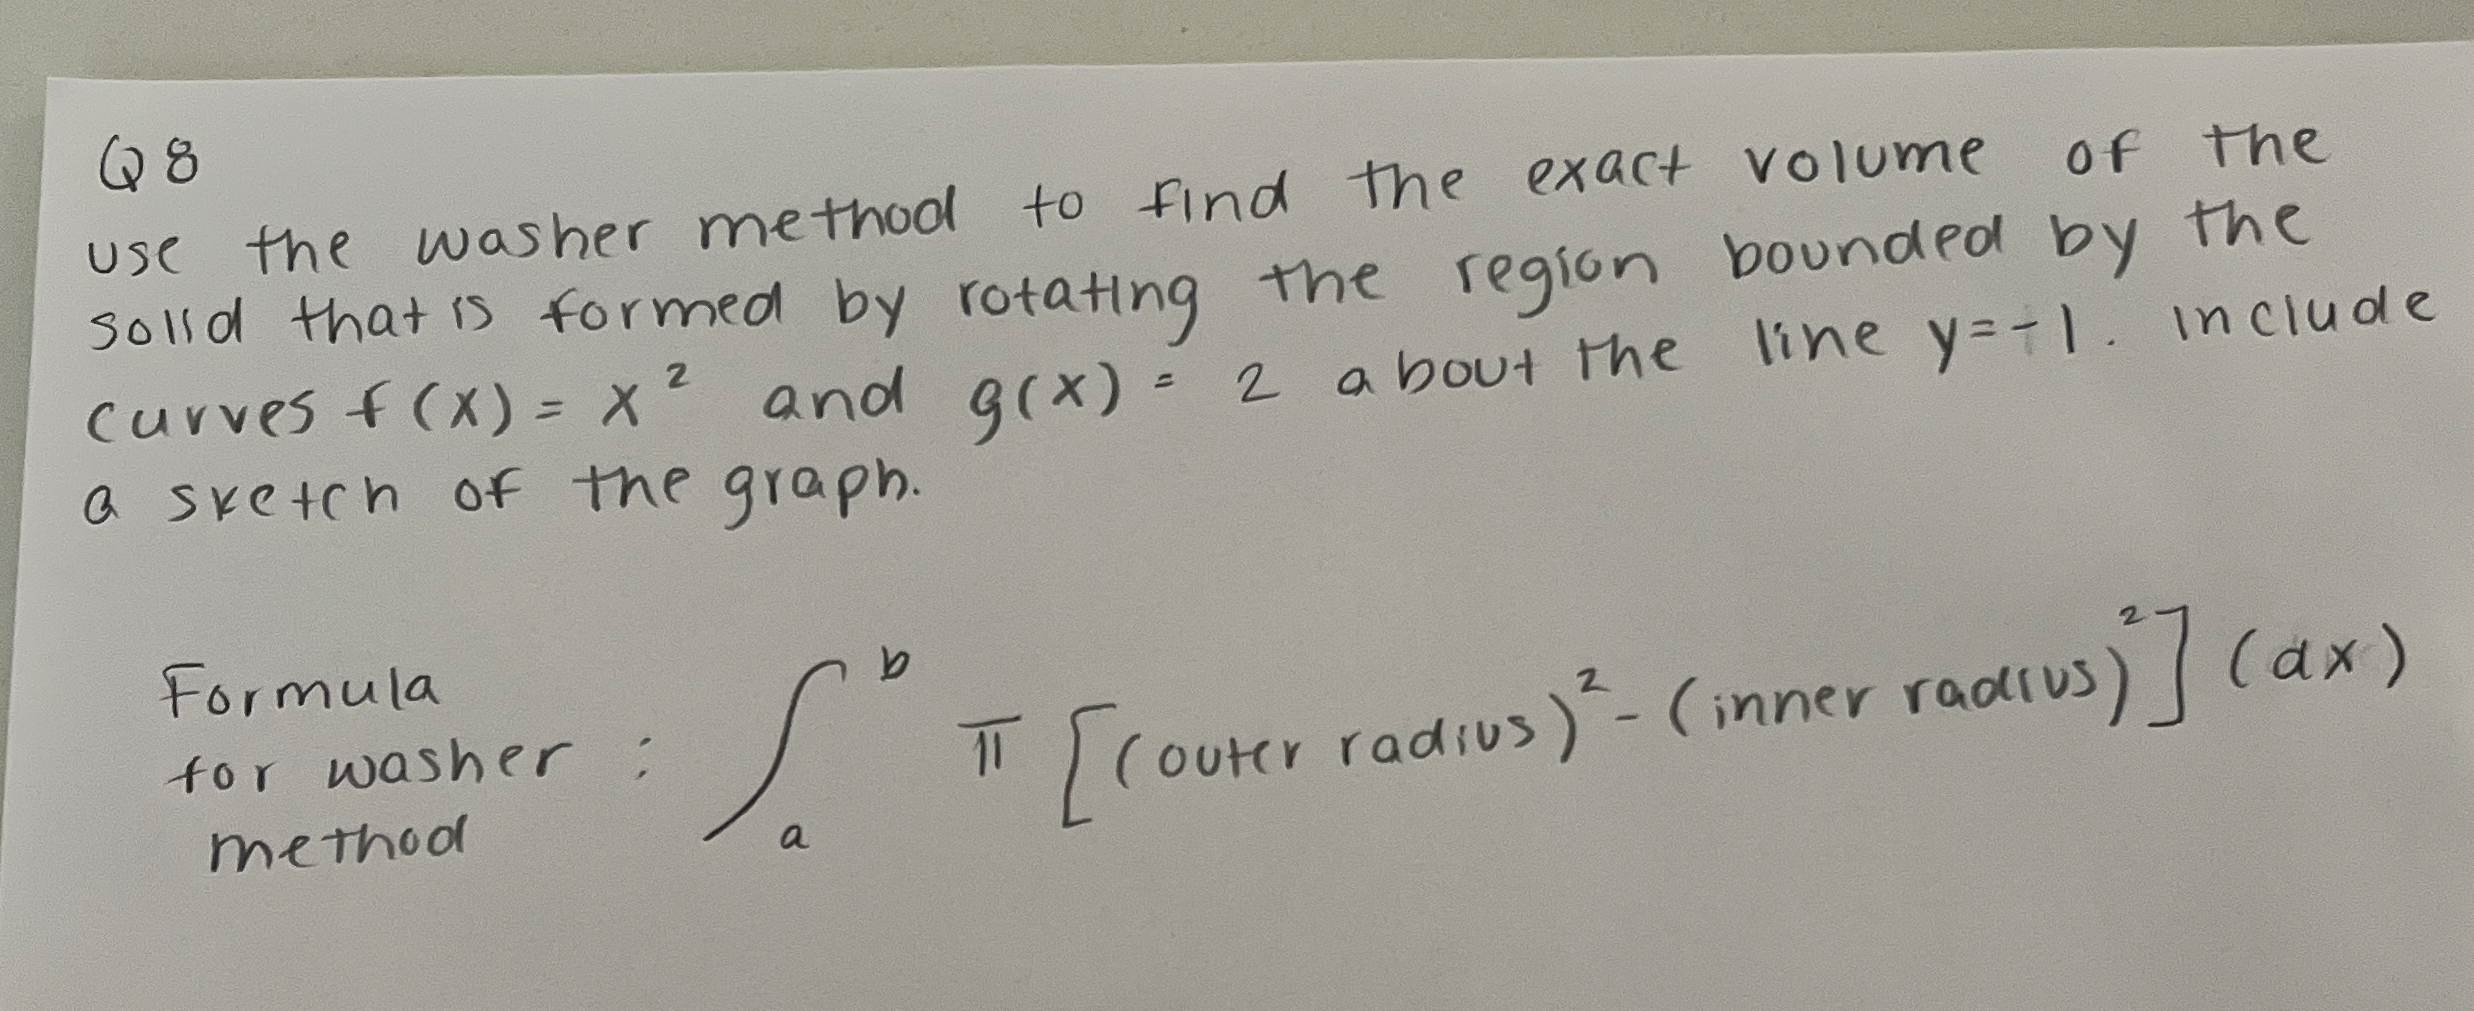 Q8
use the washer method to find the exact volume of the
solid that is formed by rotating the region bounded by the
curves f(x) = x² and g(x) = 2 about the line y=-1. include
a sketch of the graph.
Formula
for washer :
method
∫ₐᵇ π [(outer radius)² - (inner radius)²] (dx)